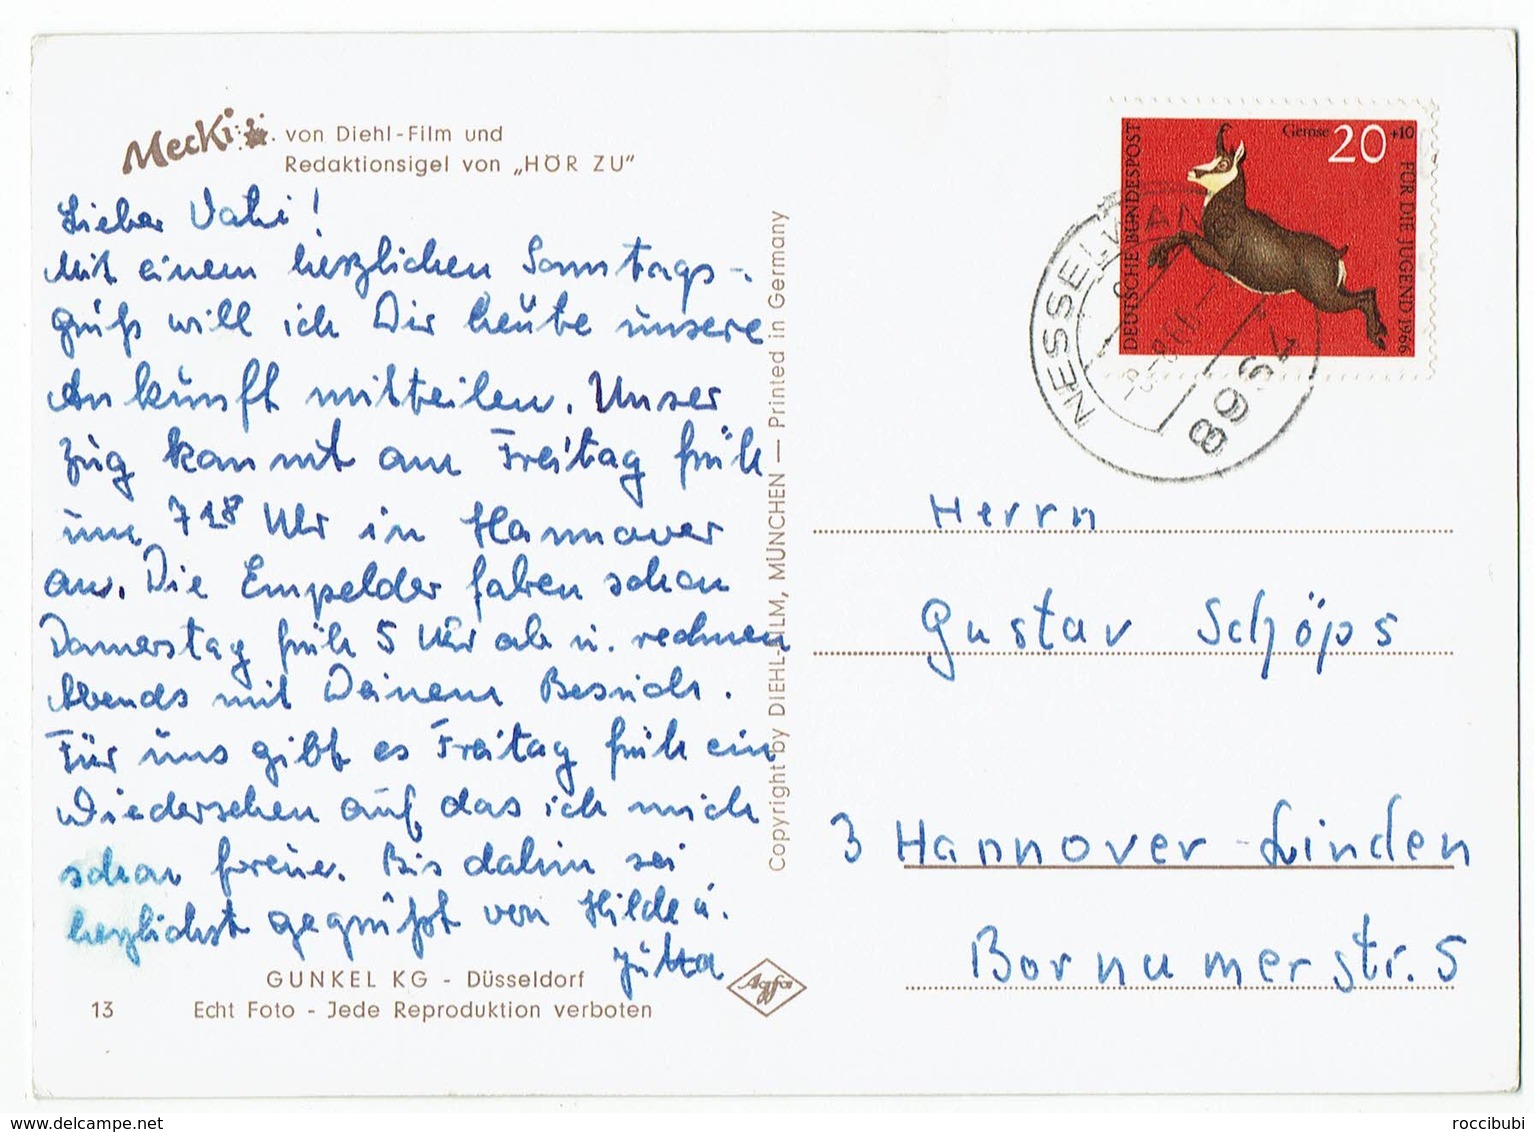 Mecki
von Diehl-Film und
Redaktionsigel von „HÖR ZU"
Lieber Vati!
Mit einem herzlichen Sonntags-
gruß will ich Dir heute unsere
Ankunft mitteilen. Unser
Zug kommt am Freitag früh
um 7 18 Uhr in Hannover
an. Die Empelder fahren schon
Donnerstag früh 5 Uhr ab u. rechnen
Abends mit Deinem Besuch.
Für uns gibt es Freitag früh ein
Wiedersehen auf das ich mich
schon freue. Bis dahin sei
herzlichst gegrüßt von Hilde u.
Jutta
GUNKEL KG - Düsseldorf
13 Echt Foto - Jede Reproduktion verboten
Agfa
Copyright by DIEHL-FILM, MÜNCHEN — Printed in Germany
DEUTSCHE BUNDESPOST
Gemse 20 +10
FÜR DIE JUGEND 1966
NESSELWANG
8964
Herrn
Gustav Schöps
3 Hannover-Linden
Bornumerstr. 5
www.delcampe.net
roccibubi